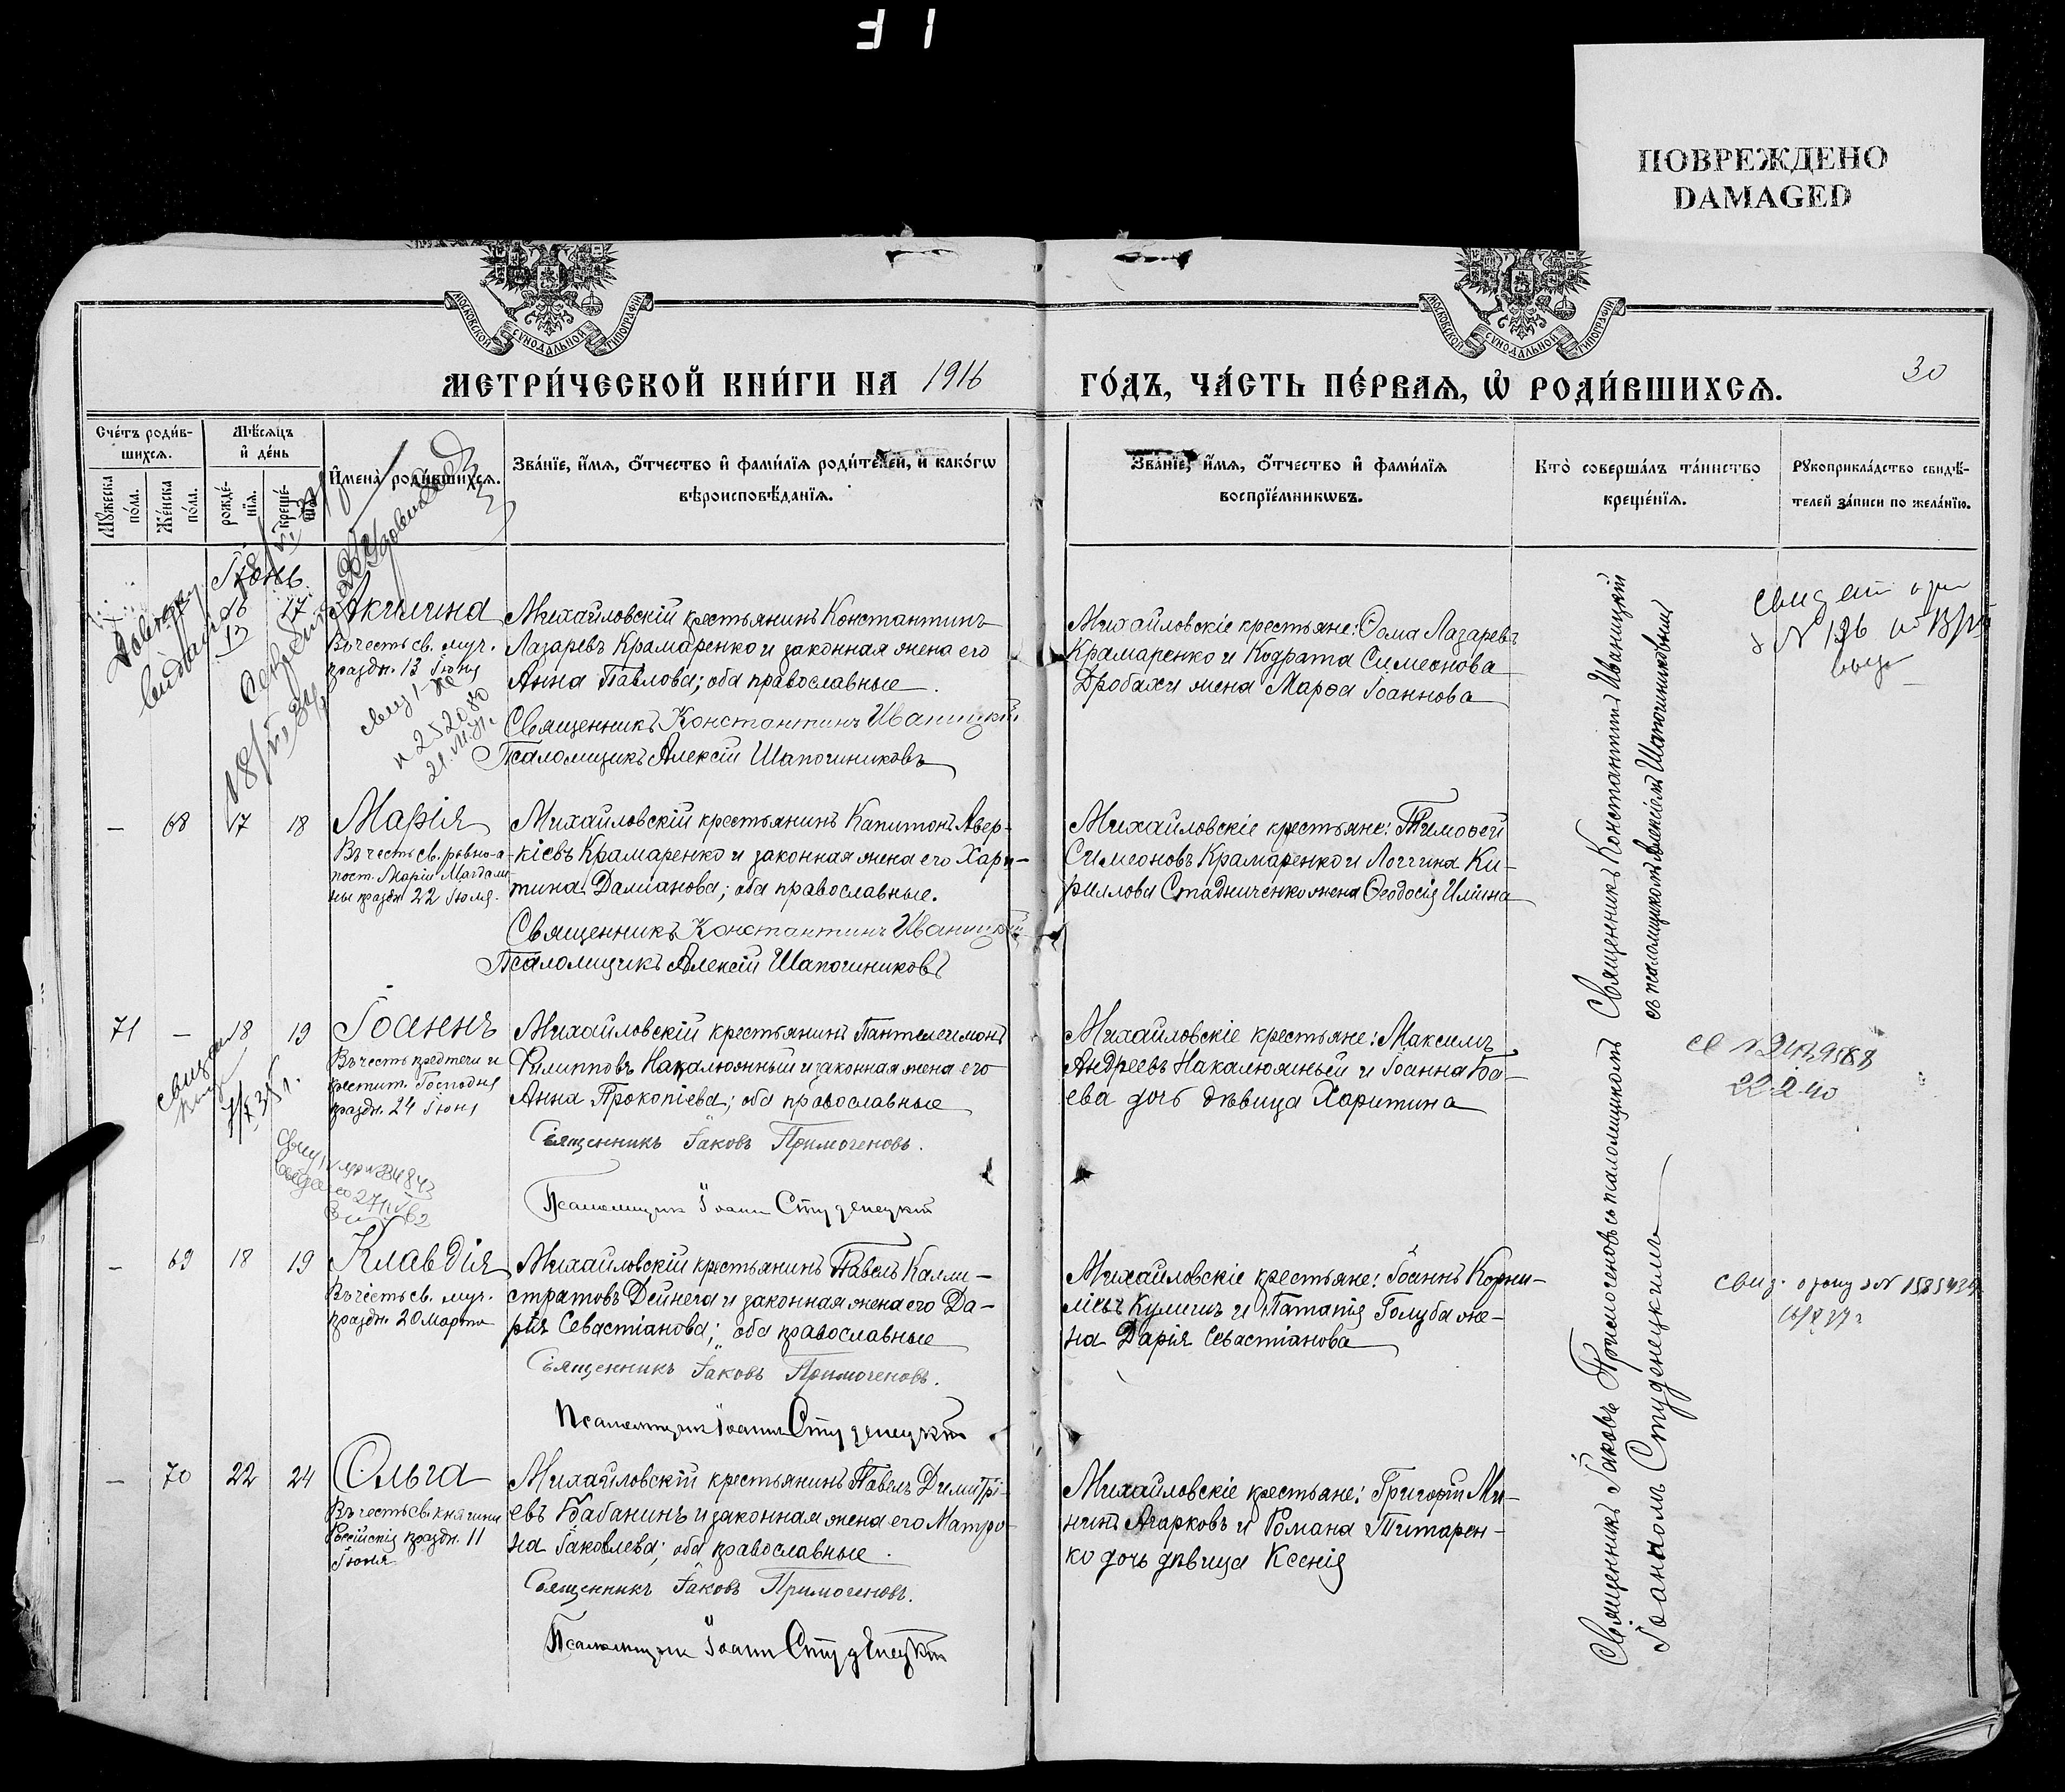 ПОВРЕЖДЕНО
DAMAGED
МОСКОВСКОЙ СѴНОДАЛЬНОЙ ТИПОГРАФІИ
МОСКОВСКОЙ СѴНОДАЛЬНОЙ ТИПОГРАФІИ
МЕТРИ́ЧЕСКОЙ КНИ́ГИ НА 1916
ГО́ДЪ, ЧА́СТЬ ПЕ́РВАѦ, Ѡ҆ РОДИ́ВШИХСѦ.
30
Сче́тъ роди́в-
шихсѧ.
Мѣ́сѧцъ
и҆ де́нь
Мꙋ́жеска
по́ла.
Же́нска
по́ла.
рожде́-
нїѧ.
креще́-
нїѧ.
И҆мена̀ роди́вшихсѧ.
Зва́нїе, и҆́мѧ, ѻ҆́тчество и҆ фамѝлїѧ роди́телей, и҆ како́гѡ
вѣроисповѣ́данїѧ.
Зва́нїе, и҆́мѧ, ѻ҆́тчество и҆ фамѝлїѧ
воспрїе́мникѡвъ.
Кто̀ соверша́лъ та́инство
креще́нїѧ.
Рꙋкоприкла́дство свидѣ́-
телей за́писи по жела́нїю.
Іюнь.
67 16 17
13
Акилина
Въ честь св. муч.
праздн. 13 Іюня
Михайловскій крестьянинъ Константинъ
Лазаревъ Крамаренко и законная жена его
Анна Павлова; оба православные
Священникъ Константинъ Иваницкій
Псаломщикъ Алексій Шапочниковъ
Михайловскіе крестьяне: Ѳома Лазаревъ
Крамаренко и Кодрата Симеонова
Дробахи жена Марѳа Іоаннова
18/VI 34
№ 252080
— 68 17 18
Марія
Въ честь св. равно-а-
пост. Маріи Магдали
ны праздн. 22 Іюля.
Михайловскій крестьянинъ Капитонъ Авер-
кіевъ Крамаренко и законная жена его Хари-
тина Даміанова; оба православные.
Священникъ Константинъ Иваницкій
Псаломщикъ Алексій Шапочниковъ
Михайловскіе крестьяне: Тимоѳей
Симеоновъ Крамаренко и Логгина Ки-
риллова Стадниченко жена Ѳеодосія Иліина
71 — 18 19
Іоаннъ
Въ честь предтечи и
крестит. Господня
праздн. 24 Іюня
Михайловскій крестьянинъ Пантелеимонъ
Филипповъ Накалюжный и законная жена его
Анна Прокопіева; оба православные
Священникъ Іаковъ Примогеновъ.
Псаломщик Іоанн Студенецкій
Михайловскіе крестьяне: Максимъ
Андреевъ Накалюжный и Іоанна Ба-
ева дочь дѣвица Харитина
22 2 40
— 69 18 19
Клавдія
Въ честь св. муч.
праздн. 20 Марта
Михайловскій крестьянинъ Павелъ Калли-
стратовъ Дейнега и законная жена его Да-
рія Севастіанова; оба православные
Священникъ Іаковъ Примогеновъ.
Псаломщик Іоанн Студенецкій
Михайловскіе крестьяне: Іоаннъ Корни-
ліевъ Кулишъ и Потапія Голуба же-
на Дарія Севастіанова
— 70 22 24
Ольга
Въ честь св. княгини
Россійскія праздн. 11
Іюля
Михайловскій крестьянинъ Павелъ Димитрі-
евъ Бабанинъ и законная жена его Матро-
на Іаковлева; оба православные.
Священникъ Іаковъ Примогеновъ.
Псаломщик Іоанн Студенецкій
Михайловскіе крестьяне: Григорій Ми-
нинъ Агарковъ и Романа Титарен-
ко дочь дѣвица Ксенія
Священникъ Константинъ Иваницкій
съ псаломщикомъ Алексіемъ Шапочниковымъ
Священникъ Іаковъ Примогеновъ съ псаломщикомъ
Іоанномъ Студенецкимъ